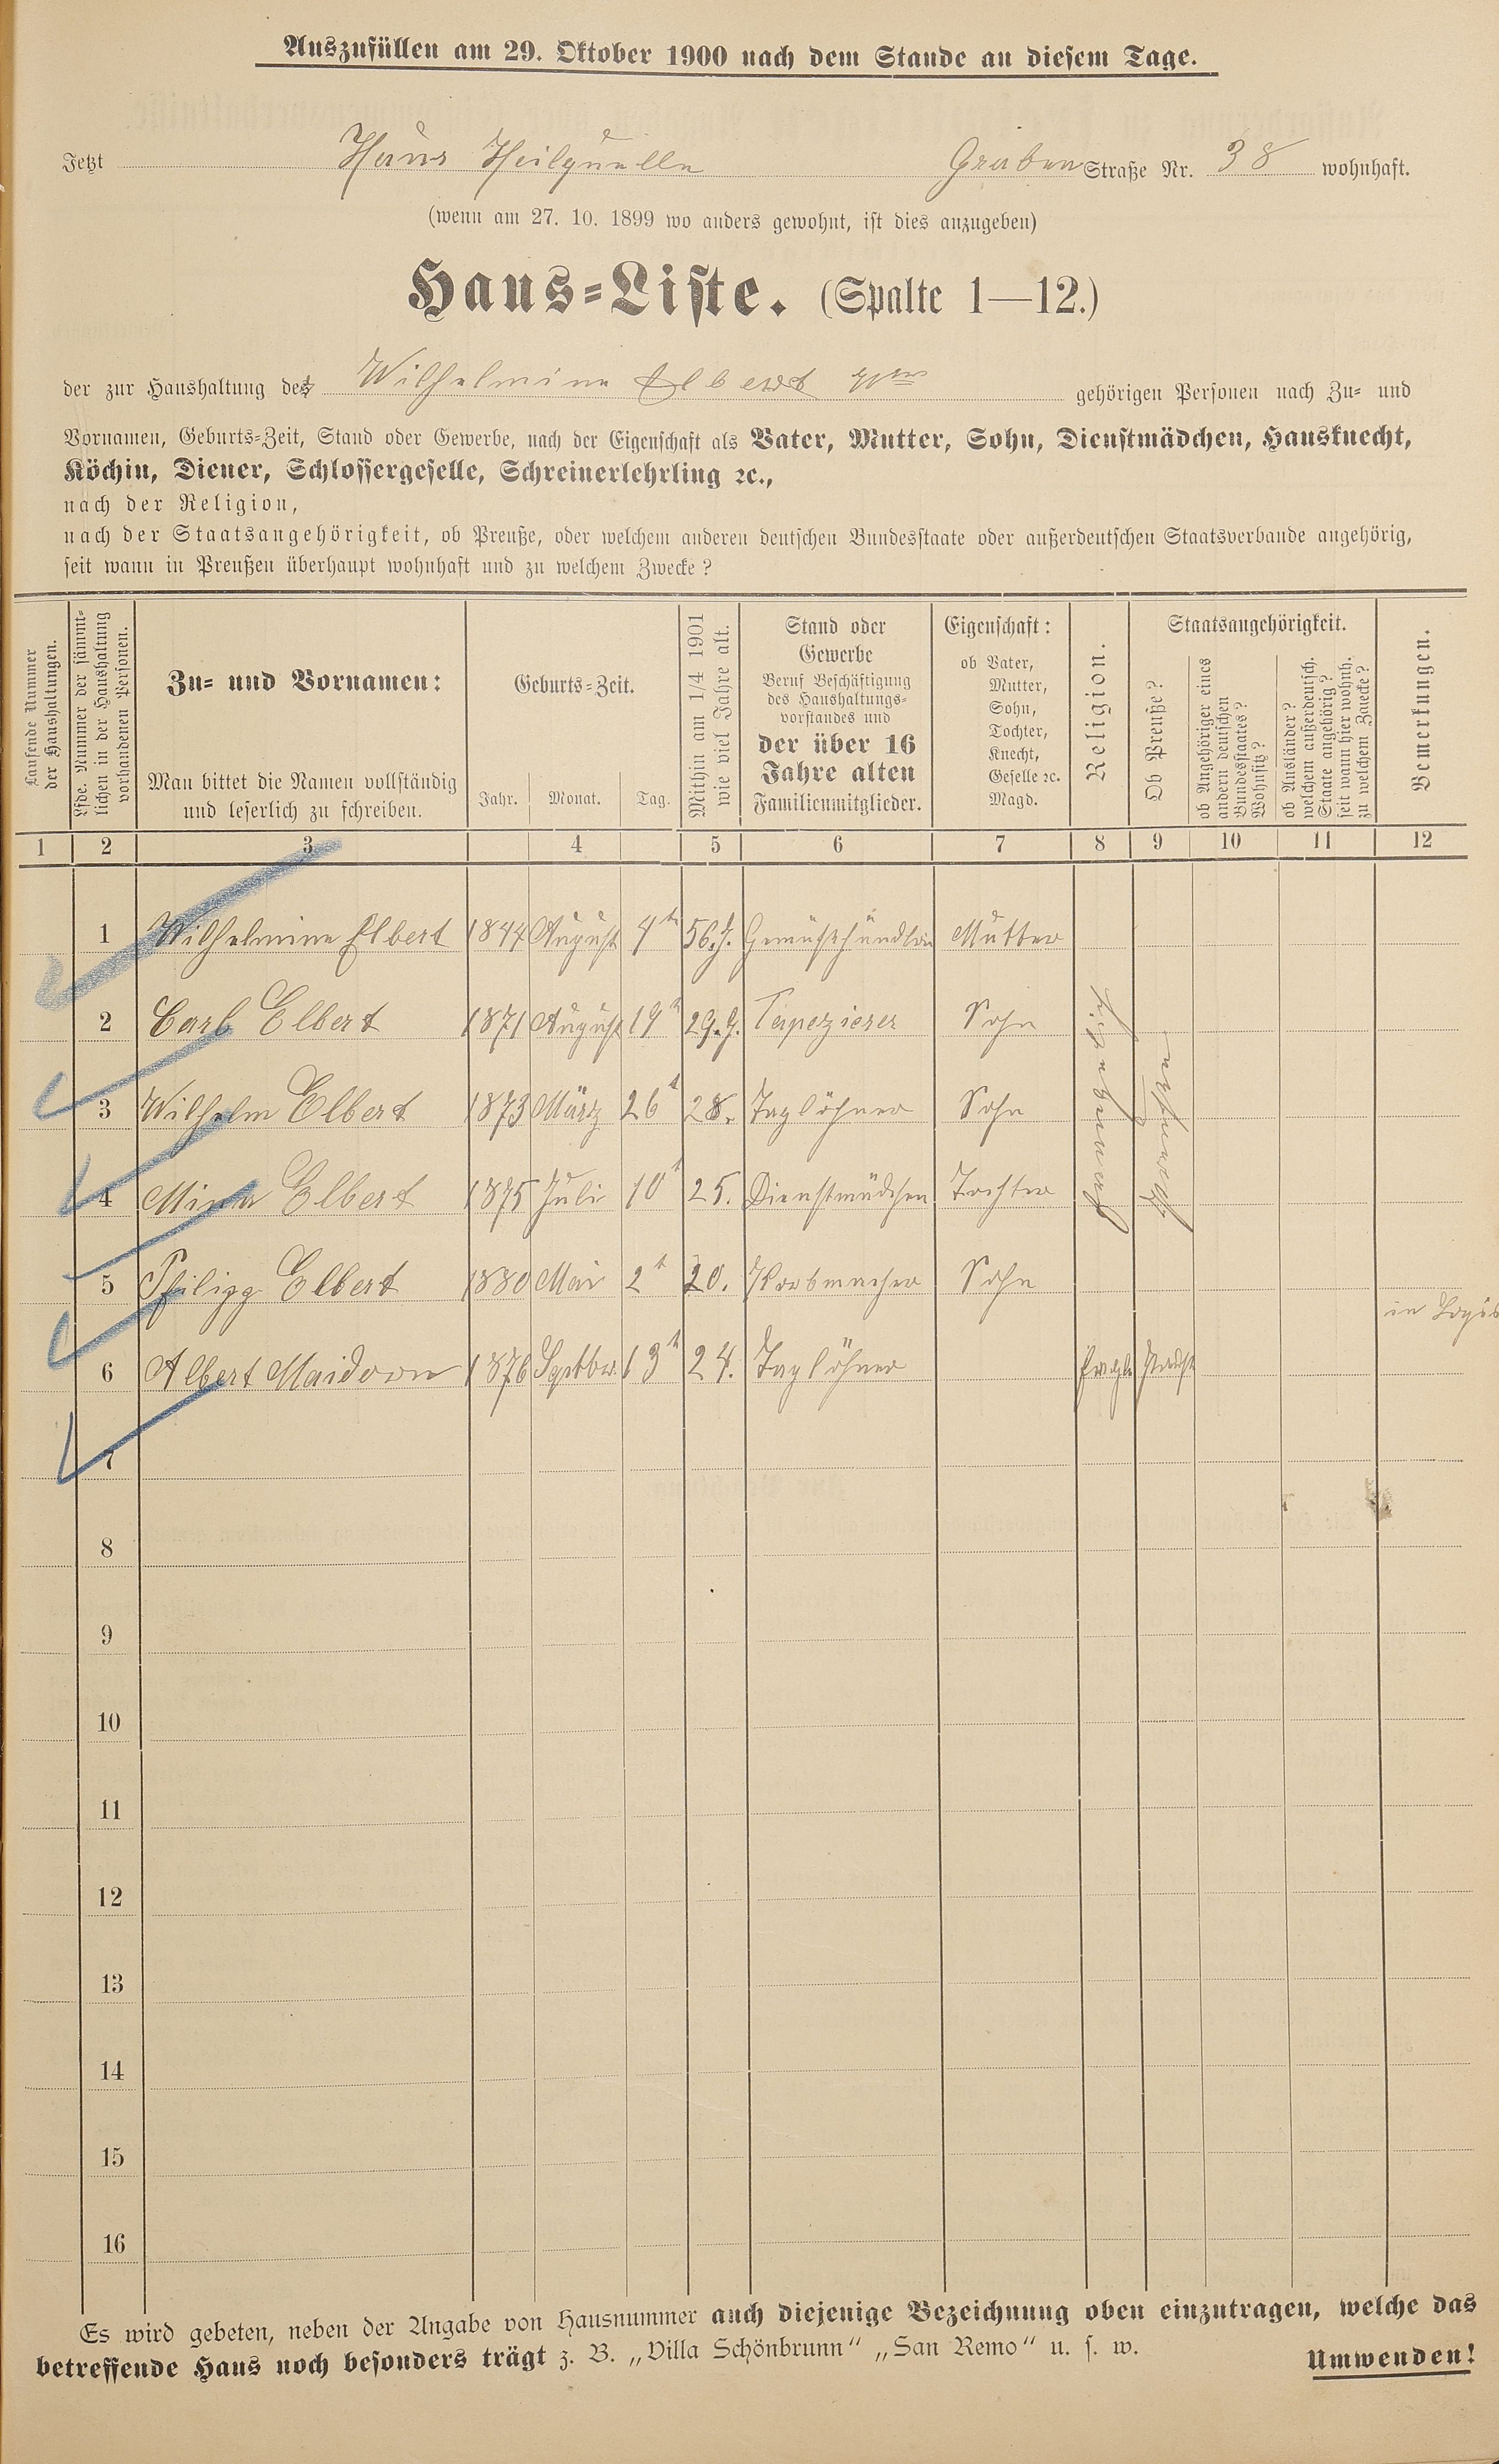 Auszufüllen am 29. Oktober 1900 nach dem Stande an diesem Tage.
Jetzt Haus Heilquelle Graben Straße Nr. 38 wohnhaft.
(wenn am 27. 10. 1899 wo anders gewohnt, ist dies anzugeben)
Haus-Liste. (Spalte 1—12.)
der zur Haushaltung der Wilhelmine Elbert Wwe gehörigen Personen nach Zu- und
Vornamen, Geburts-Zeit, Stand oder Gewerbe, nach der Eigenschaft als Vater, Mutter, Sohn, Dienstmädchen, Hausknecht,
Köchin, Diener, Schlossergeselle, Schreinerlehrling ꝛc.,
nach der Religion,
nach der Staatsangehörigkeit, ob Preuße, oder welchem anderen deutschen Bundesstaate oder außerdeutschen Staatsverbande angehörig,
seit wann in Preußen überhaupt wohnhaft und zu welchem Zwecke?
Laufende Nummer
der Haushaltungen.
Lfde. Nummer der sämmt-
lichen in der Haushaltung
vorhandenen Personen.
Zu- und Vornamen:
Man bittet die Namen vollständig
und leserlich zu schreiben.
Geburts-Zeit.
Jahr. Monat. Tag.
Mithin am 1/4 1901
wie viel Jahre alt.
Stand oder
Gewerbe
Beruf Beschäftigung
des Haushaltungs-
vorstandes und
der über 16
Jahre alten
Familienmitglieder.
Eigenschaft:
ob Vater,
Mutter,
Sohn,
Tochter,
Knecht,
Geselle ꝛc.
Magd.
Religion.
Staatsangehörigkeit.
Ob Preuße?
ob Angehöriger eines
andern deutschen
Bundesstaates?
Wohnsitz?
ob Ausländer?
welchem außerdeutsch.
Staate angehörig?
seit wann hier wohnh.
zu welchem Zwecke?
Bemerkungen.
1 2 3 4 5 6 7 8 9 10 11 12
1 Wilhelmine Elbert 1844 August 4t 56.J. Gemüsehändlerin Mutter
2 Carl Elbert 1871 August 19t 29.J. Tapezierer Sohn
3 Wilhelm Elbert 1873 März 26t 28. Taglöhner Sohn
4 Mina Elbert 1875 Juli 10t 25. Dienstmädchen Tochter
5 Philipp Elbert 1880 Mai 2t 20. Korbmacher Sohn
evangelisch
in Logis
6 Albert Maidorn 1876 Septbr 13t 24. Taglöhner
7
8
9
10
11
12
13
14
15
16
Es wird gebeten, neben der Angabe von Hausnummer auch diejenige Bezeichnung oben einzutragen, welche das
betreffende Haus noch besonders trägt z. B. „Villa Schönbrunn“ „San Remo“ u. s. w.
Umwenden!